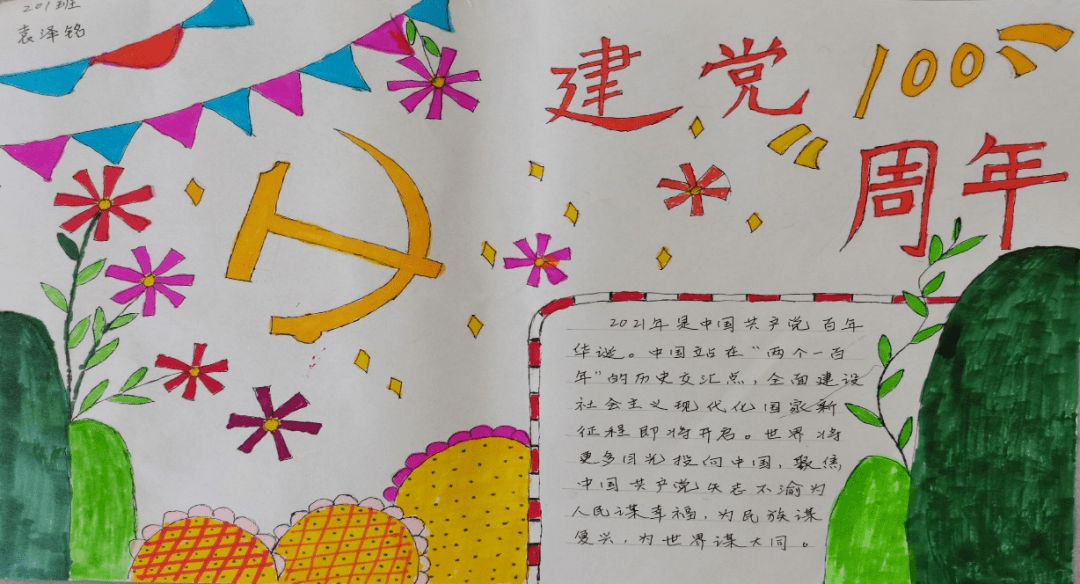 201班
袁泽铭
建党100
周年
2021年是中国共产党百年
华诞。中国站在“两个一百
年”的历史交汇点，全面建设
社会主义现代化国家新
征程即将开启。世界将
更多目光投向中国，聚焦
中国共产党矢志不渝为
人民谋幸福，为民族谋
复兴，为世界谋大同。